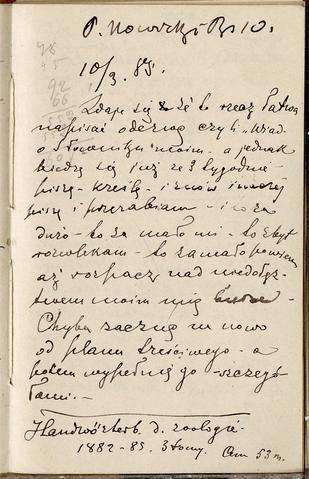 P. Nowicki Rs 10.
10/3. 85.
Zdaje się że to rzecz łatwa
napisać odezwę czyli „Wiad.
o Słowniku" moim - a jednak
biedzę się już ze 3 tygodnie
piszę - kreślę - i znów inaczej
piszę i przerabiam - i to za
dużo - to za mało mi - to zbyt
rozwlekam - to za mało powiem
aż rozpacz nad niedołęz-
twem moim mię bierze -
Chyba zacznę na nowo
od planu treściwego - a
potem wypełnię go - szczegó-
łami. -
Handwörterb. d. Zoologie.
1882-85. 3 tomy. Cena 53 m.